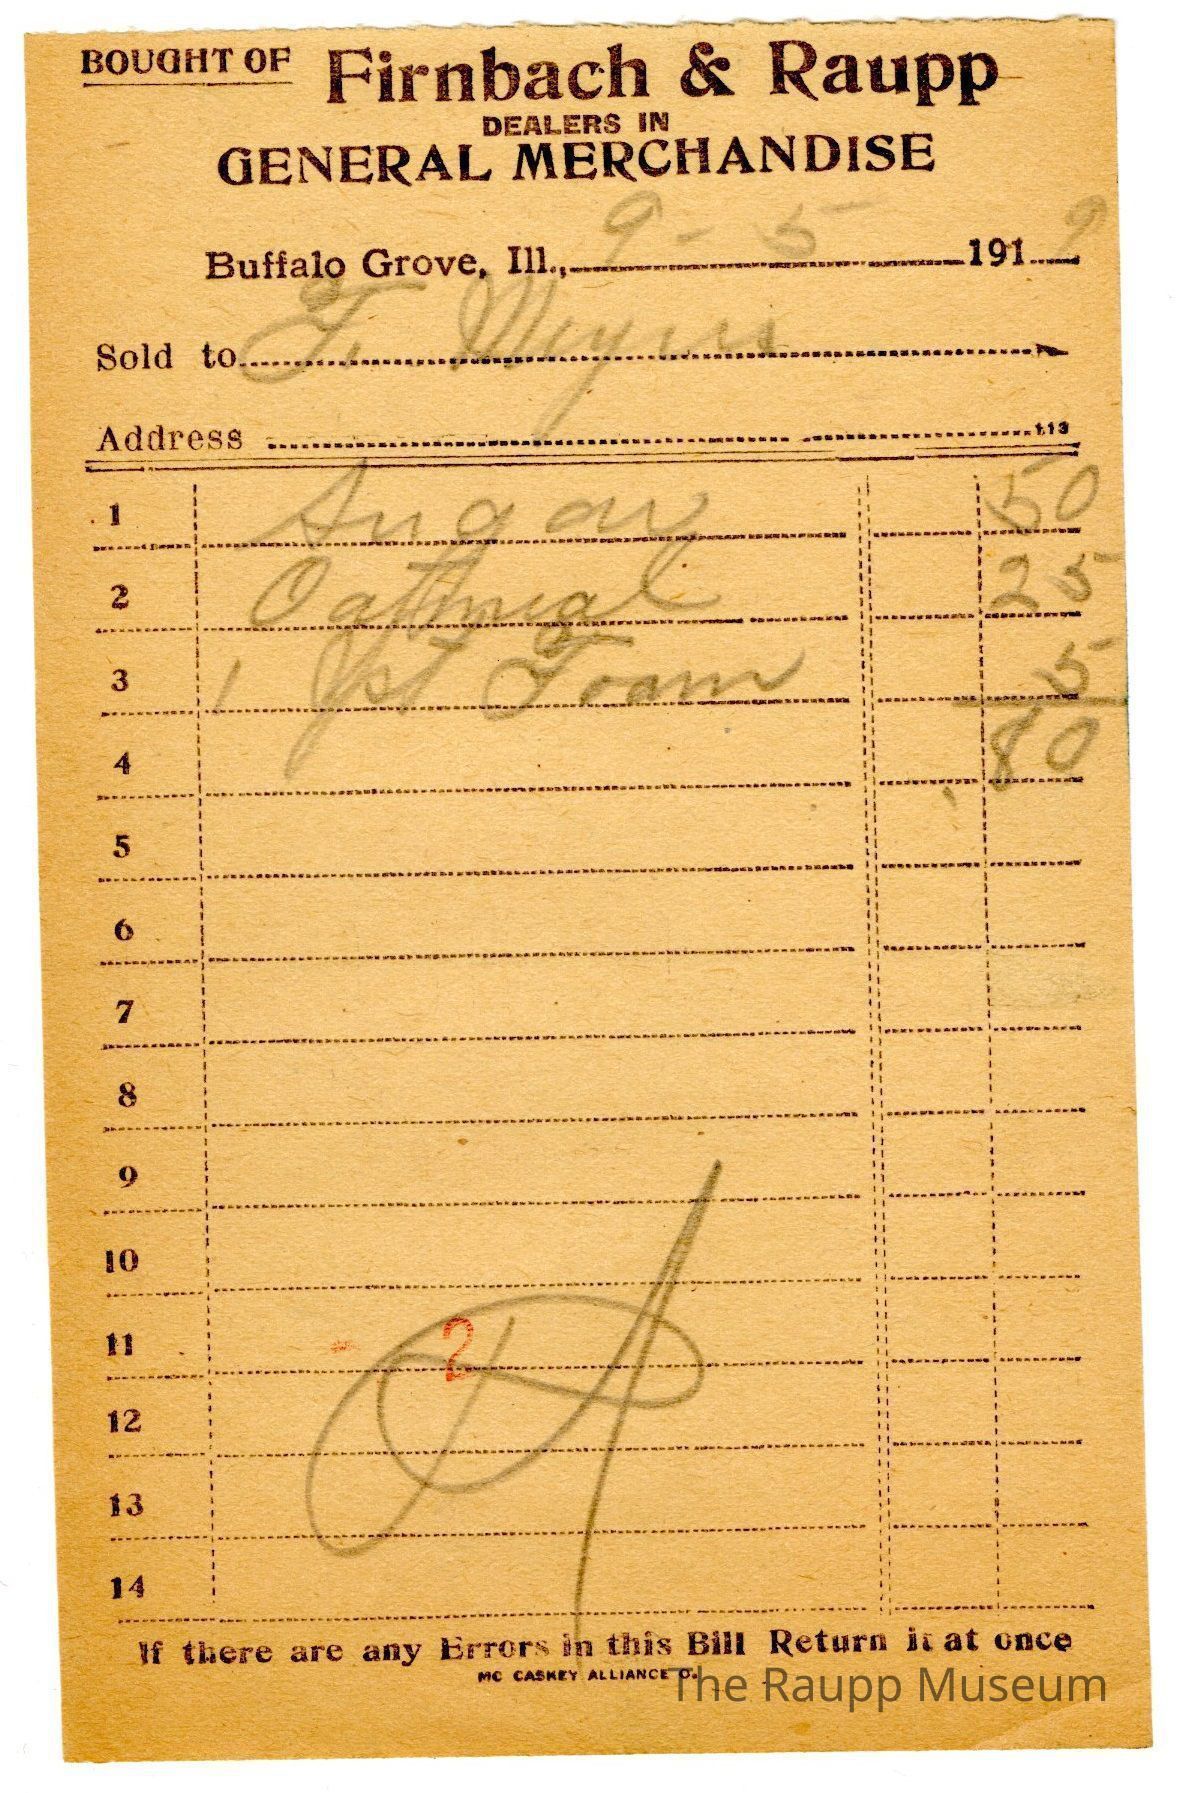 BOUGHT OF Firnbach & Raupp
DEALERS IN
GENERAL MERCHANDISE
Buffalo Grove, Ill., 9-5 1919
Sold to F. Meyers
Address 113
1 Sugar 50
2 Oatmeal 25
3 1 Yst Foam 5
4 80
5
6
7
8
9
10
11 2
12
13
14
If there are any Errors in this Bill Return it at once
MC CASKEY ALLIANCE O.
The Raupp Museum